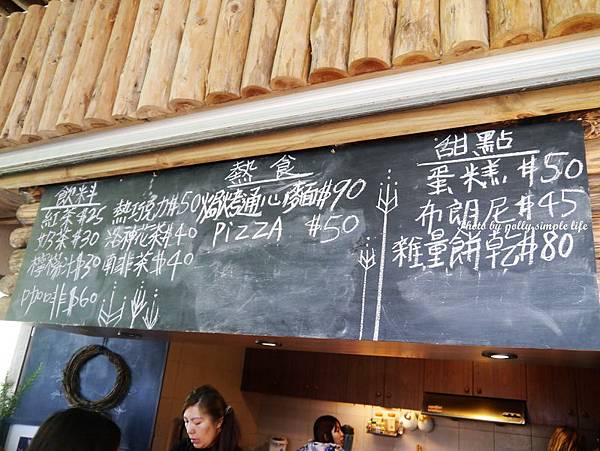 飲料
紅茶$25 熱巧克力$50
奶茶$30 洛神花茶$40
檸檬汁$30 南非茶$40
咖啡$60
熱食
焗烤通心麵$90
PiZZA $50
甜點
蛋糕$50
布朗尼$45
雜量餅乾$80
photo by polly simple life